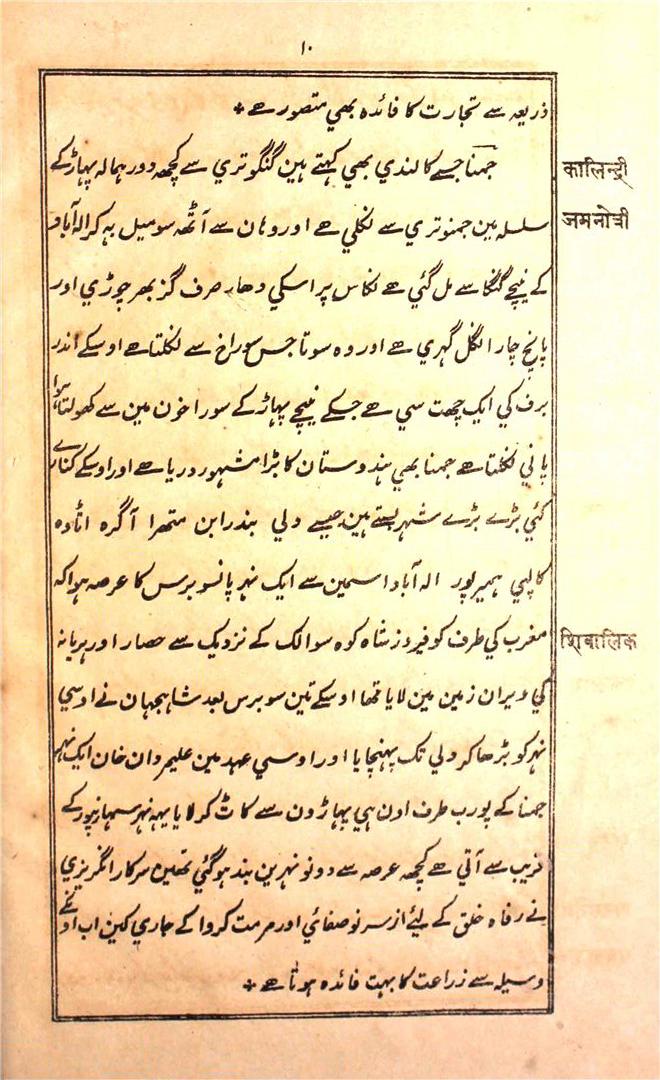 ۱۰
ذریعہ سے تجارت کا فائدہ بھي متصور ہے +
جمنا جسے کالندي بھي کہتے ہین گنگوتري سے کچھہ دور ہمالہ پہاڑ کے
कालिन्द्री
سلسلہ مین جمنوتري سے نکلي ہے اور وہان سے آٹھہ سو میل بہ کر الہ آباد
जमनोत्री
کے نیچے گنگا سے مل گئي ہے نکاس پر اسکي دھار صرف گز بھر چوڑي اور
پانچ چار انگل گہري ہے اور وہ سوتا جس سوراخ سے نکلتا ہے اوسکے اندر
برف کي ایک چھت سي ہے جسکے نیچے پہاڑ کے سوراخون مین سے کھولتا ہوا
پاني نکلتا ہے جمنا بھي ہندوستان کا بڑا مشہور دریا ہے اور اوسکے کنارے
کئي بڑے بڑے شہر بستے ہین جیسے دلي بندرابن متھرا آگرہ اٹاوہ
کالپي ہمیرپور الہ آباد اسمین سے ایک نہر پانسو برس کا عرصہ ہوا کہ
مغرب کي طرف کو فیروز شاہ کوہ سوالک کے نزدیک سے حصار اور ہریانہ
शिवालिक
کي ویران زمین مین لایا تھا اوسکے تین سو برس بعد شاہجہان نے اوسي
نہر کو بڑھا کر دلي تک پہنچایا اور اوسي عہد مین علیمردان خان ایک نہر
جمنا کے پورب طرف اون ہي پہاڑون سے کاٹ کر لایا یہہ نہر سہارنپور کے
قریب سے آتي ہے کچھہ عرصہ سے دونو نہرین بند ہو گئي تھین سرکار انگریزي
نے رفاہ خلق کے لیئے از سر نو صفائي اور مرمت کروا کے جاري کین اب اونکے
وسیلہ سے زراعت کا بہت فائدہ ہوتا ہے +